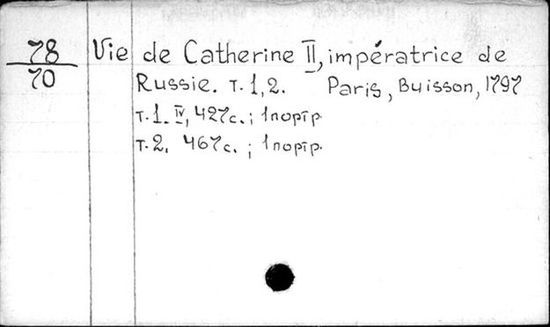 78
70
Vie de Catherine II, impératrice de
Russie. т.1,2. Paris, Buisson, 1797
т.1. IV, 427с.; 1 портр.
т.2. 467с.; 1 портр.